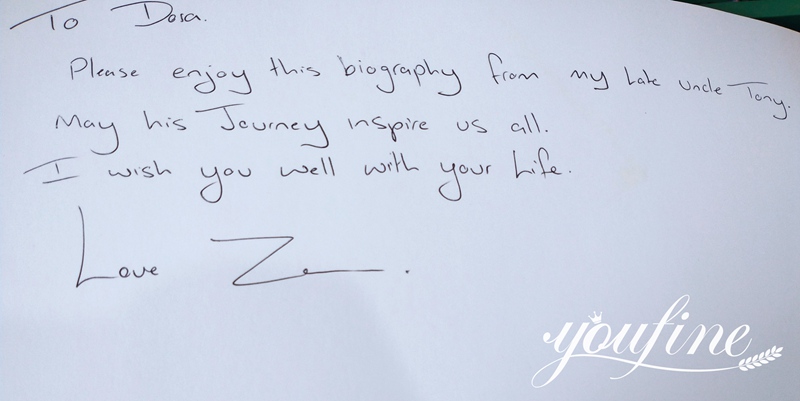 To Dosa.
Please enjoy this biography from my late uncle Tony.
May his Journey inspire us all.
I wish you well with your Life.
Love
youfine